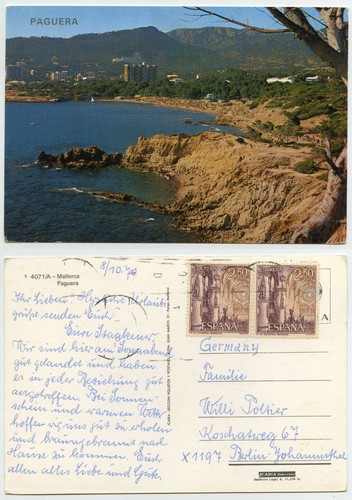 PAGUERA
4071/A – Mallorca
Paguera
8/10.79
Ihr Lieben! Herzliche Urlaubs
grüße senden Euch
Eure
Wir sind hier am Sonnabend
gut gelandet und haben
es in jeder Beziehung gut
angetroffen. Bei Sonnen-
schein und warmem Wetter
hoffen wir uns gut zu erholen
und braungebrannt nach
Hause zu kommen. Euch
allen alles Liebe und Gute.
2,50
ESPAÑA
2,50
ESPAÑA
A
Germany
Familie
Willi
Koschatweg 67
X 1197 Berlin-Johannisthal